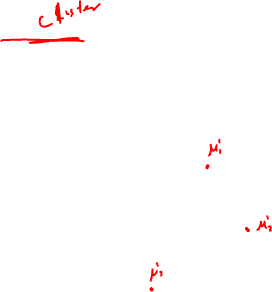 cluster
μ'₁
μ'₂
μ'₃